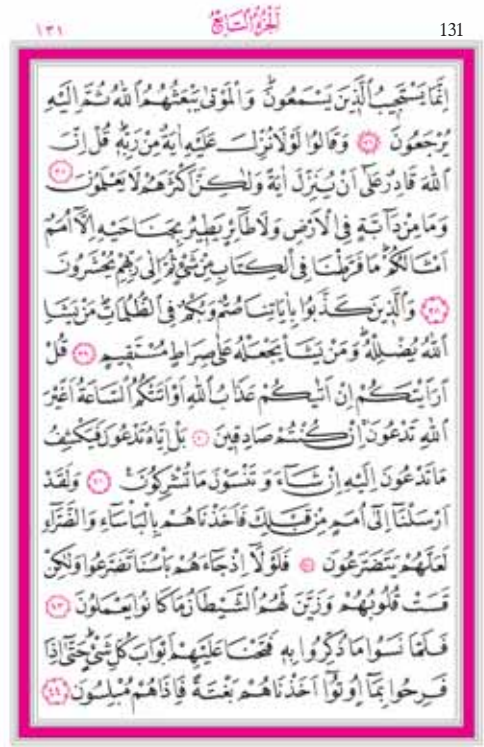 ١٣١ اَلْجُزْءُ السَّابِعُ 131
اِنَّمَا يَسْتَجِيبُ الَّذِينَ يَسْمَعُونَ وَالْمَوْتٰى يَبْعَثُهُمُ اللّٰهُ ثُمَّ اِلَيْهِ
يُرْجَعُونَ ﴿٣٦﴾ وَقَالُوا لَوْلَا نُزِّلَ عَلَيْهِ اٰيَةٌ مِنْ رَبِّهِ قُلْ اِنَّ
اللّٰهَ قَادِرٌ عَلٰٓى اَنْ يُنَزِّلَ اٰيَةً وَلٰكِنَّ اَكْثَرَهُمْ لَا يَعْلَمُونَ ﴿٣٧﴾
وَمَا مِنْ دَٓابَّةٍ فِي الْاَرْضِ وَلَا طَٓائِرٍ يَطِيرُ بِجَنَاحَيْهِ اِلَّٓا اُمَمٌ
اَمْثَالُكُمْ مَا فَرَّطْنَا فِي الْكِتَابِ مِنْ شَيْءٍ ثُمَّ اِلٰى رَبِّهِمْ يُحْشَرُونَ
﴿٣٨﴾ وَالَّذِينَ كَذَّبُوا بِاٰيَاتِنَا صُمٌّ وَبُكْمٌ فِي الظُّلُمَاتِ مَنْ يَشَأِ
اللّٰهُ يُضْلِلْهُ وَمَنْ يَشَأْ يَجْعَلْهُ عَلٰى صِرَاطٍ مُسْتَقِيمٍ ﴿٣٩﴾ قُلْ
اَرَاَيْتَكُمْ اِنْ اَتٰيكُمْ عَذَابُ اللّٰهِ اَوْ اَتَتْكُمُ السَّاعَةُ اَغَيْرَ
اللّٰهِ تَدْعُونَ اِنْ كُنْتُمْ صَادِقِينَ ﴿٤٠﴾ بَلْ اِيَّاهُ تَدْعُونَ فَيَكْشِفُ
مَا تَدْعُونَ اِلَيْهِ اِنْ شَٓاءَ وَتَنْسَوْنَ مَا تُشْرِكُونَ ﴿٤١﴾ وَلَقَدْ
اَرْسَلْنَٓا اِلٰٓى اُمَمٍ مِنْ قَبْلِكَ فَاَخَذْنَاهُمْ بِالْبَأْسَٓاءِ وَالضَّرَّٓاءِ
لَعَلَّهُمْ يَتَضَرَّعُونَ ﴿٤٢﴾ فَلَوْلَٓا اِذْ جَٓاءَهُمْ بَأْسُنَا تَضَرَّعُوا وَلٰكِنْ
قَسَتْ قُلُوبُهُمْ وَزَيَّنَ لَهُمُ الشَّيْطَانُ مَا كَانُوا يَعْمَلُونَ ﴿٤٣﴾
فَلَمَّا نَسُوا مَا ذُكِّرُوا بِهِ فَتَحْنَا عَلَيْهِمْ اَبْوَابَ كُلِّ شَيْءٍ حَتّٰٓى اِذَا
فَرِحُوا بِمَٓا اُو۫تُٓوا اَخَذْنَاهُمْ بَغْتَةً فَاِذَا هُمْ مُبْلِسُونَ ﴿٤٤﴾